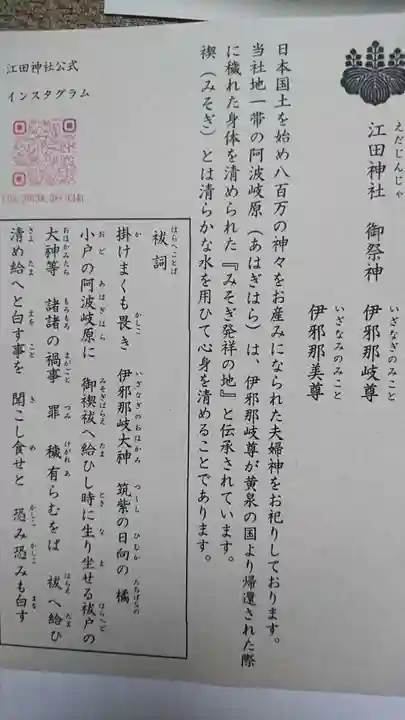 江田神社 御祭神 伊邪那岐尊
えだじんじゃ いざなぎのみこと
伊邪那美尊
いざなみのみこと
日本国土を始め八百万の神々をお産みになられた夫婦神をお祀りしております。
当社地一帯の阿波岐原（あはぎはら）は、伊邪那岐尊が黄泉の国より帰還された際
に穢れた身体を清められた『みそぎ発祥の地』と伝承されています。
禊（みそぎ）とは清らかな水を用ひて心身を清めることであります。
祓詞
はらへことば
掛けまくも畏き 伊邪那岐大神 筑紫の日向の 橘
か かしこ いざなぎのおほかみ つくし ひむか たちばなの
小戸の阿波岐原に 御禊祓へ給ひし時に生り坐せる祓戸の
おど あはぎはら みそぎはらえ たま とき な ま はらへど
大神等 諸諸の禍事 罪 穢有らむをば 祓へ給ひ
おほかみたち もろもろ まがごと つみ けがれ あ はらえ たま
清め給へと白す事を 聞こし食せと 恐み恐みも白す
きよ たま まを こと き め かしこ かしこ まを
江田神社公式
インスタグラム